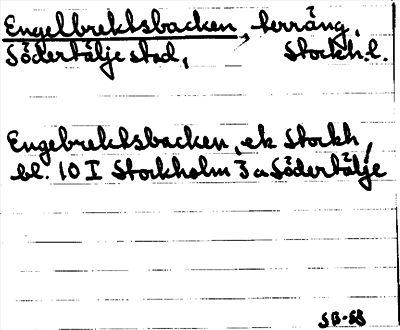 Engelbrektsbacken, terräng,
Södertälje stad, Stockh. l.
Engebrektsbacken, ek Stockh,
bl. 10 I Stockholm 3 a Södertälje
SB-58